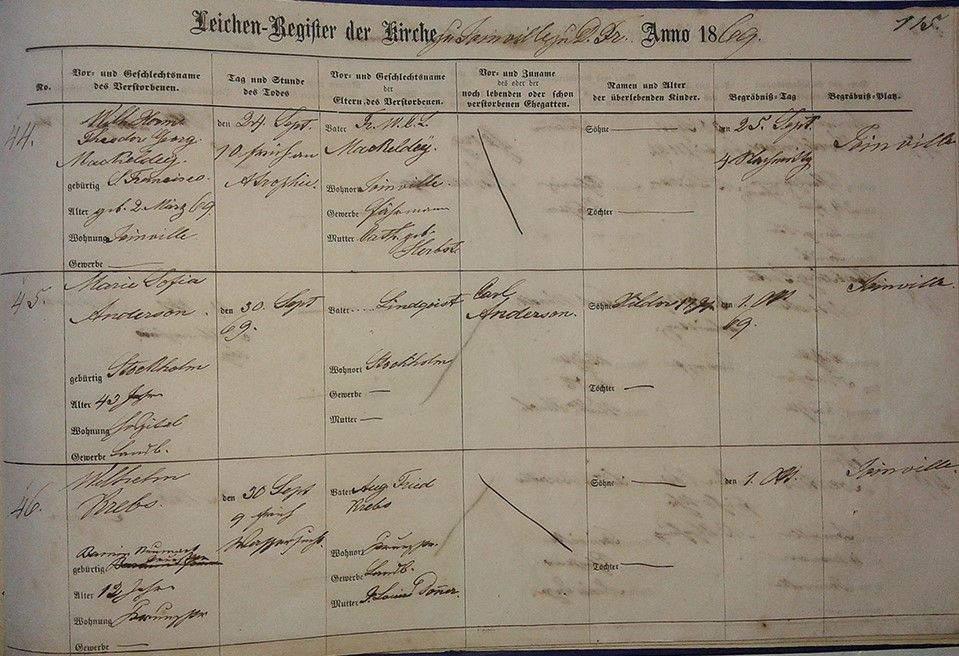 115.
Leichen-Register der Kirche zu Joinville Anno 1869.
No.
Vor- und Geschlechtsname
des Verstorbenen.
Tag und Stunde
des Todes
Vor- und Geschlechtsname
der
Eltern des Verstorbenen.
Vor- und Zuname
des oder der
noch lebenden oder schon
verstorbenen Ehegatten.
Namen und Alter
der überlebenden Kinder.
Begräbniß-Tag
Begräbniß-Platz.
44.
Theodor Georg
gebürtig S. Francisco.
Alter geb. 2 März 69
Wohnung Joinville
Gewerbe —
den 24 Sept.
10 früh an
Atrophie.
Vater
Wohnort Joinville
Gewerbe
Mutter Cath. geb.
Herbst
Söhne —
Töchter —
den 25. Sept.
4 Nachmittg
Joinville
45.
Marie Sofia
Anderson.
gebürtig Stockholm
Alter 43 Jahr
Wohnung
Gewerbe Landb.
den 30 Sept
69.
Vater Lindqvist
Wohnort Stockholm
Gewerbe —
Mutter —
Carl
Anderson.
Söhne
Töchter —
den 1. Okt
69.
Joinville.
46.
Wilhelm
Krebs.
gebürtig
Alter 12 Jahr
Wohnung
Gewerbe —
den 30 Sept
9 früh
Wassersucht.
Vater Aug Fried
Krebs
Wohnort
Gewerbe Landb.
Mutter
Söhne —
Töchter —
den 1. Okt.
Joinville.